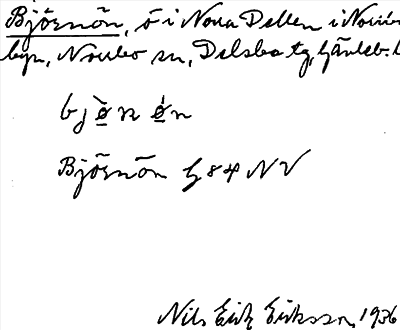 Björnön, ö i Norra Dellen i Norrin
byn, Norrbo sn, Delsbo tg, Gävleb. l
bjø̀n ø̀n
Björnön G 84 NV
Nils Erik Eriksson, 1936